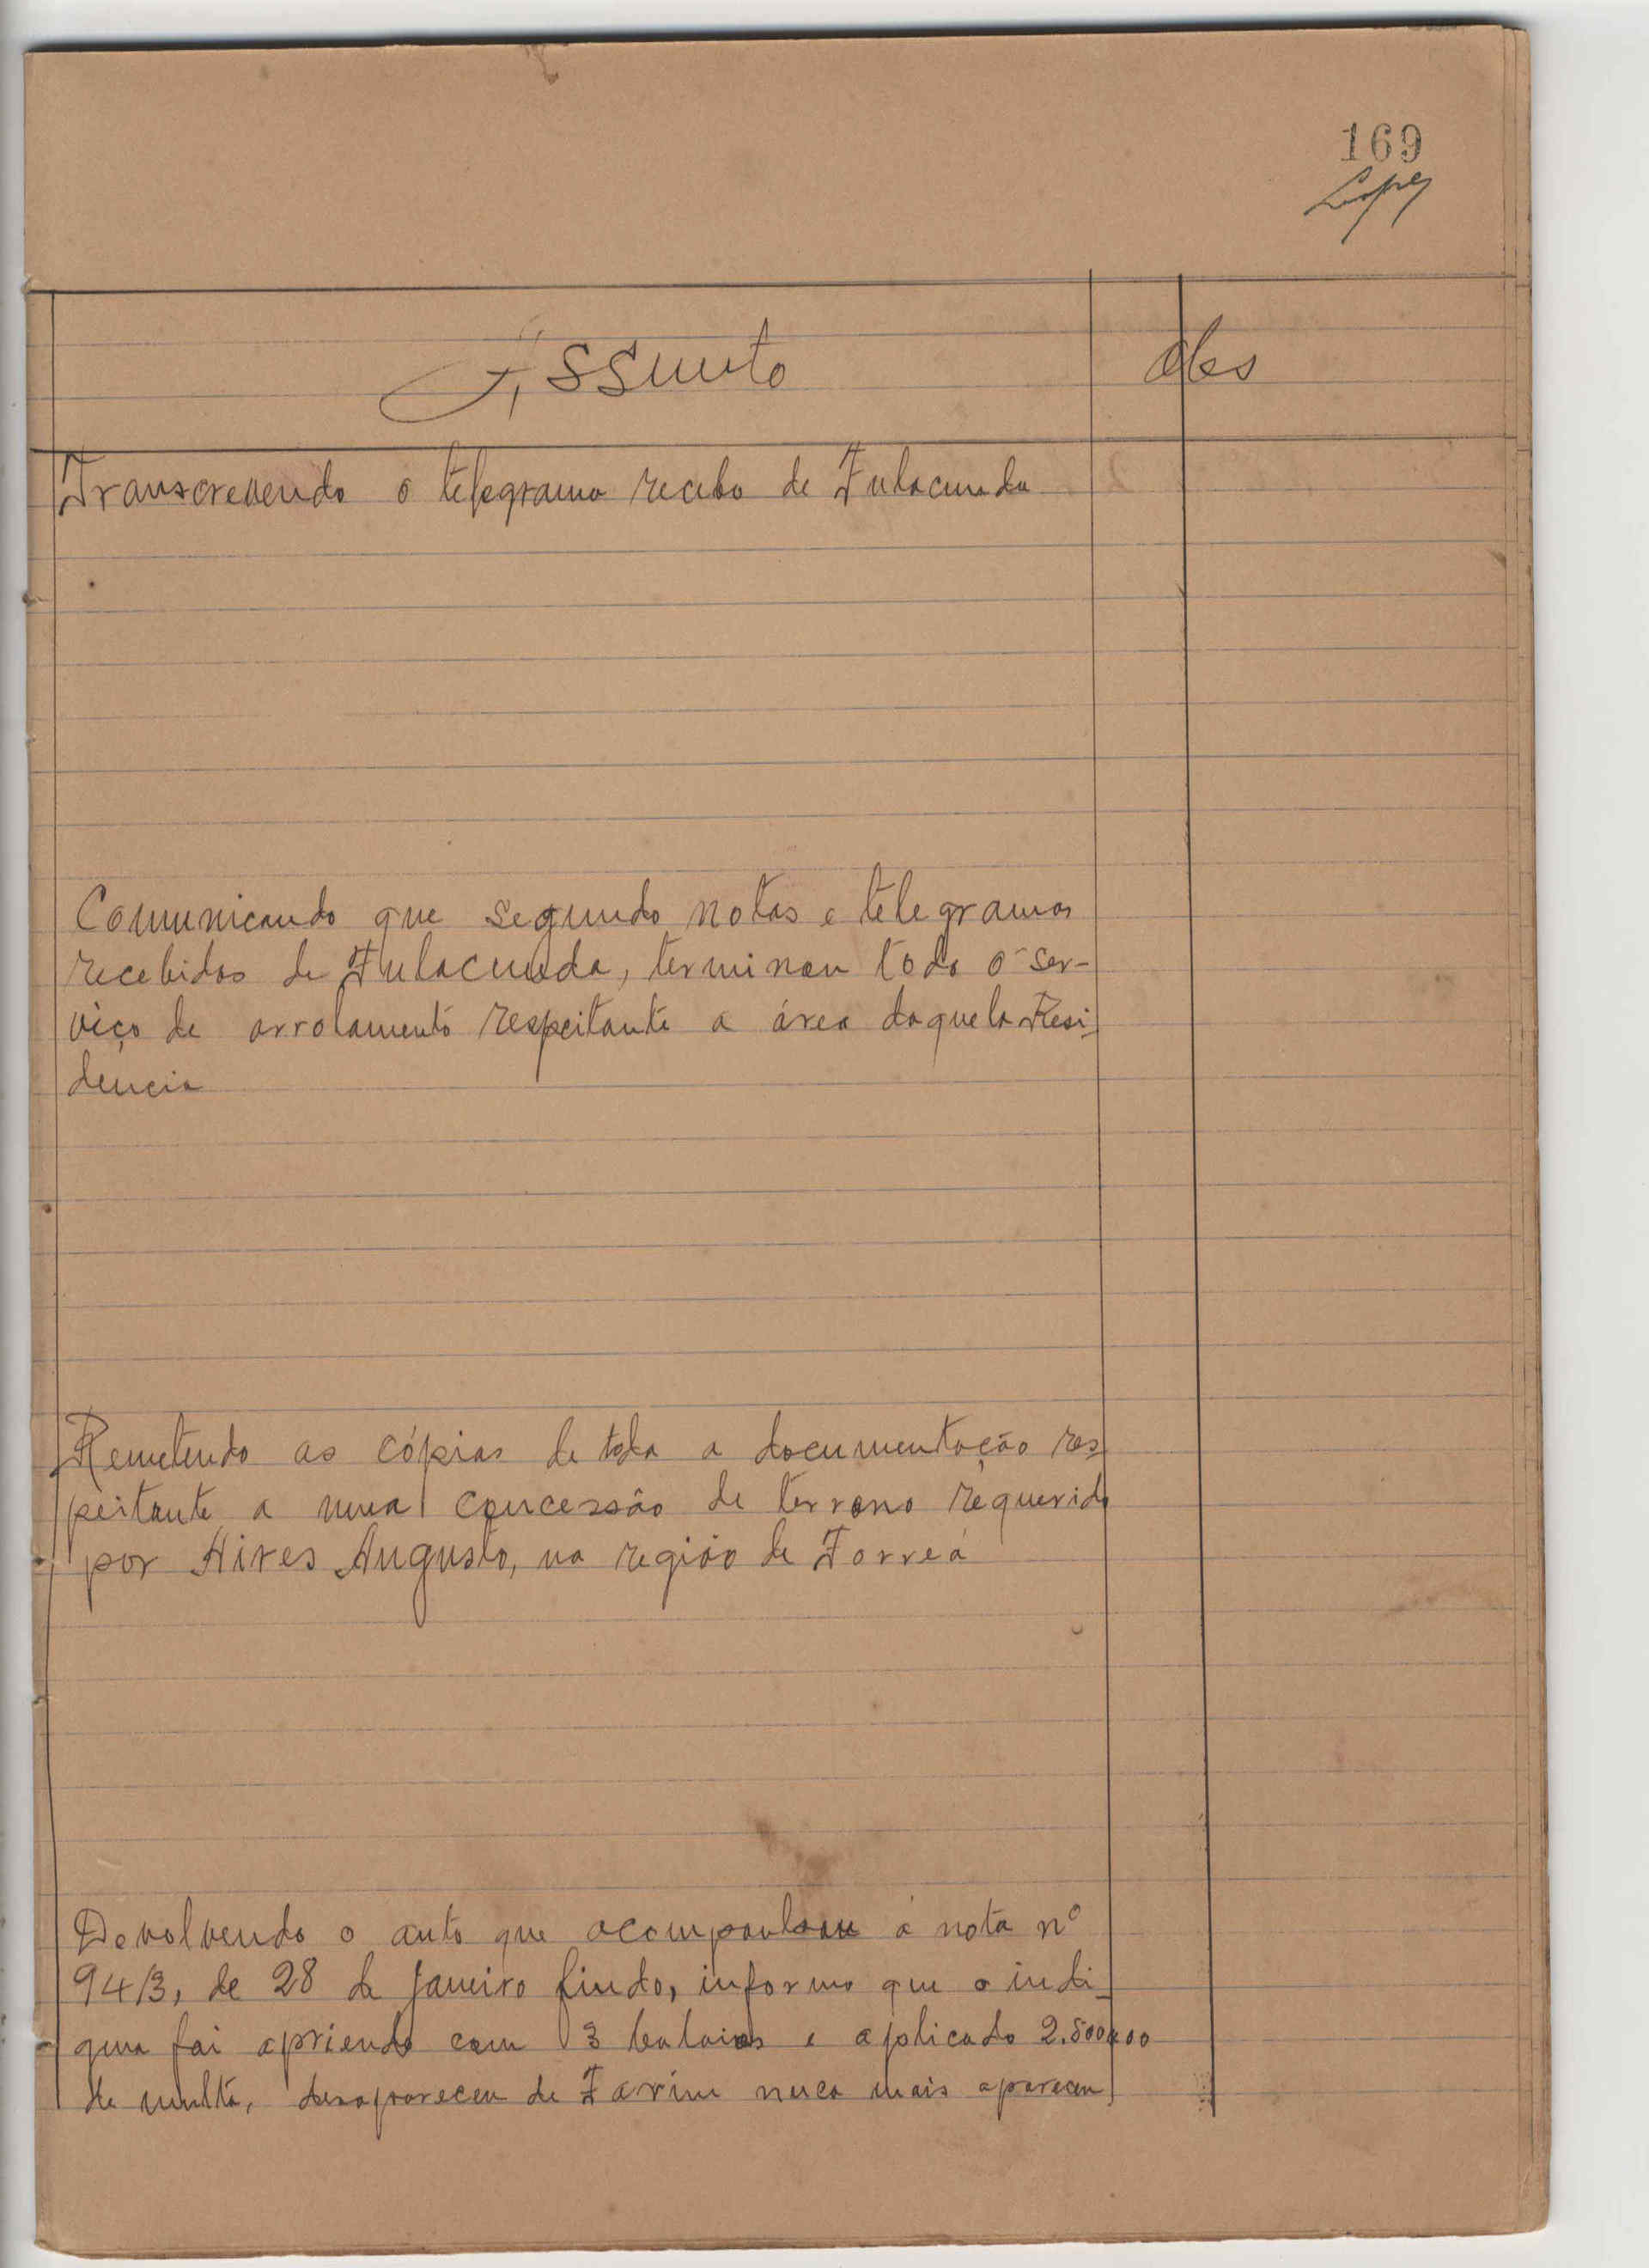 169
Lopes
Assunto Obs
Transcrevendo o telegrama recebo de Fulacunda
Comunicando que segundo notas e telegramas
recebidos de Fulacunda, terminou todo o ser-
viço de arrolamento respeitante a área daquela Resi-
dencia
Remetendo as cópias de toda a documentação res-
peitante a uma concessão de terreno requerido
por Aires Augusto, na região de Forreá
Devolvendo o auto que acompanhou a nota nº
94/3, de 28 de Janeiro findo, informo que o indi-
gena foi apriendo com 3 balaios e aplicado 2.500$00
de multa, desapareceu de Farim nuca mais apareceu